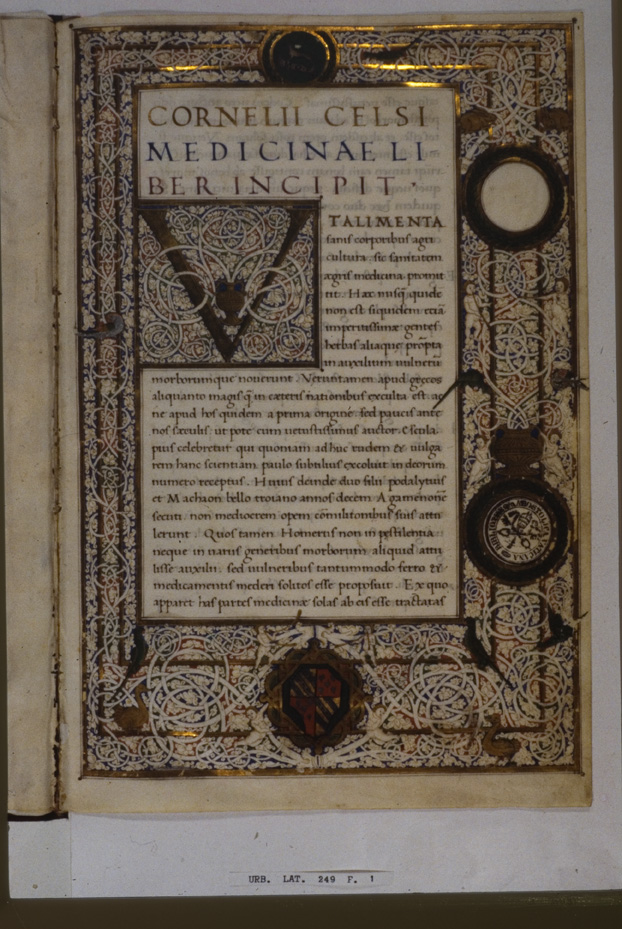 CORNELII CELSI
MEDICINAE LI
BER INCIPIT.
VTALIMENTA
sanis corporibus agri
cultura. sic sanitatem
ægris medicina promit
tit. Hæc nusq̃ quidē
non est siquidem etiã
imperitissimæ gentes
herbas aliaque prõpta
in auxilium uulnerũ
morborumque nouerunt. Veruntamen apud grecos
aliquanto magis q̃ in cæteris nationibus exculta est ac
ne apud hos quidem a prima origine sed paucis ante
nos sæculis. ut pote cum uetustissimus auctor. Escula
pius celebretur qui quoniam adhuc rudem & uulga
rem hanc scientiam paulo subtilius excoluit in deorum
numero receptus. Huius deinde duo filii podalyrius
et Machaon bello troiano annos decem Agamenonẽ
secuti. non mediocrem opem cõmilitonibus suis attu
lerunt. Quos tamen Homerus non in pestilentia
neque in uariis generibus morborum aliquid attu
lisse auxilii. sed uulneribus tantummodo ferro &
medicamentis mederi solitos esse proposuit. Ex quo
apparet has partes medicinæ solas ab eis esse tractatas
URB. LAT. 249 F. 1